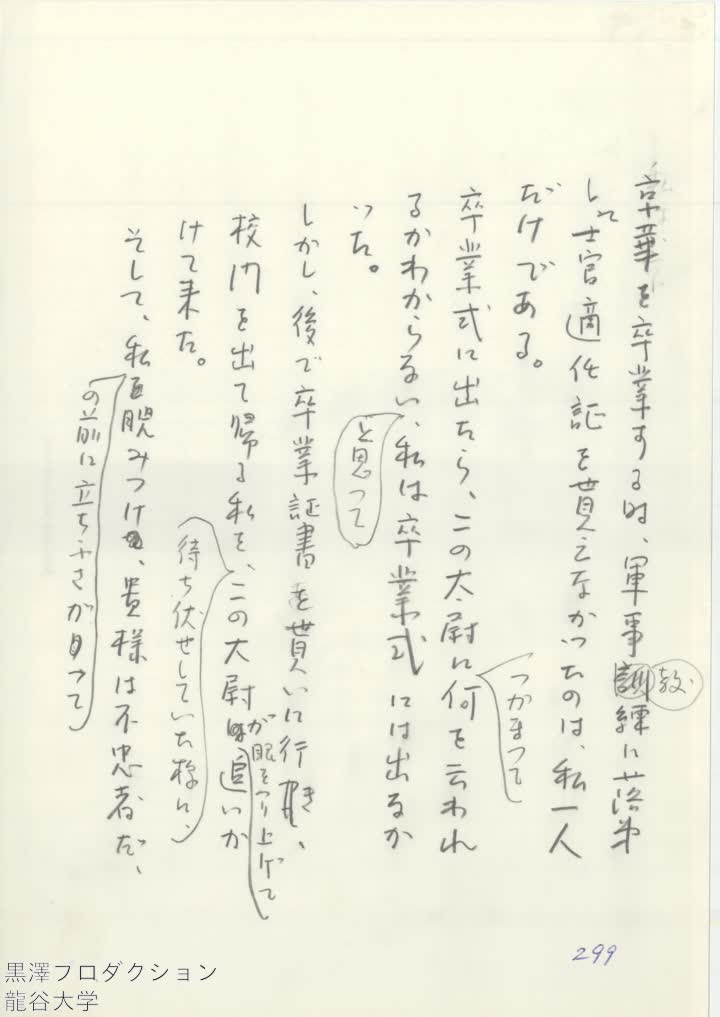 京華を卒業する時、軍事訓練に落第
教
して士官適任証を貰えなかったのは、私一人
だけである。
卒業式に出たら、この大尉に何を云われ
つかまって
るかわからない、私は卒業式には出るか
と思って
った。
しかし、後で卒業証書を貰いに行き、
校門を出て帰る私を、この大尉は追いか
が眼をつり上げて
待ち伏せしていた様に、
けて来た。
そして、私を睨みつけ、貴様は不忠者だ、
の前に立ちふさがって
299
黒澤プロダクション
龍谷大学